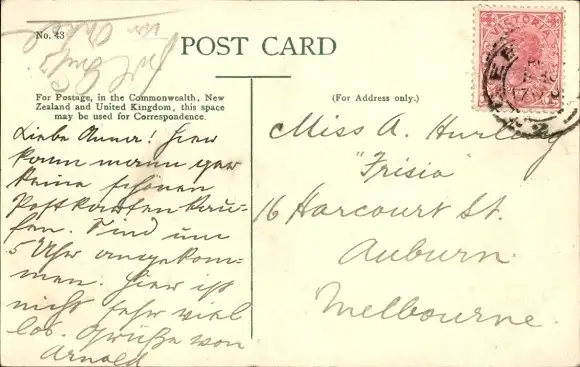 No. 43
POST CARD
VICTORIA
For Postage, in the Commonwealth, New
Zealand and United Kingdom, this space
may be used for Correspondence.
(For Address only.)
Liebe Anna! Hier
kann mann gar
keine schönen
Postkarten kau-
fen. Sind um
5 Uhr angekom-
men. Hier ist
nicht sehr viel
los. Grüße von
Arnold
Miss A.
"Frisia"
16 Harcourt St.
Auburn.
Melbourne.